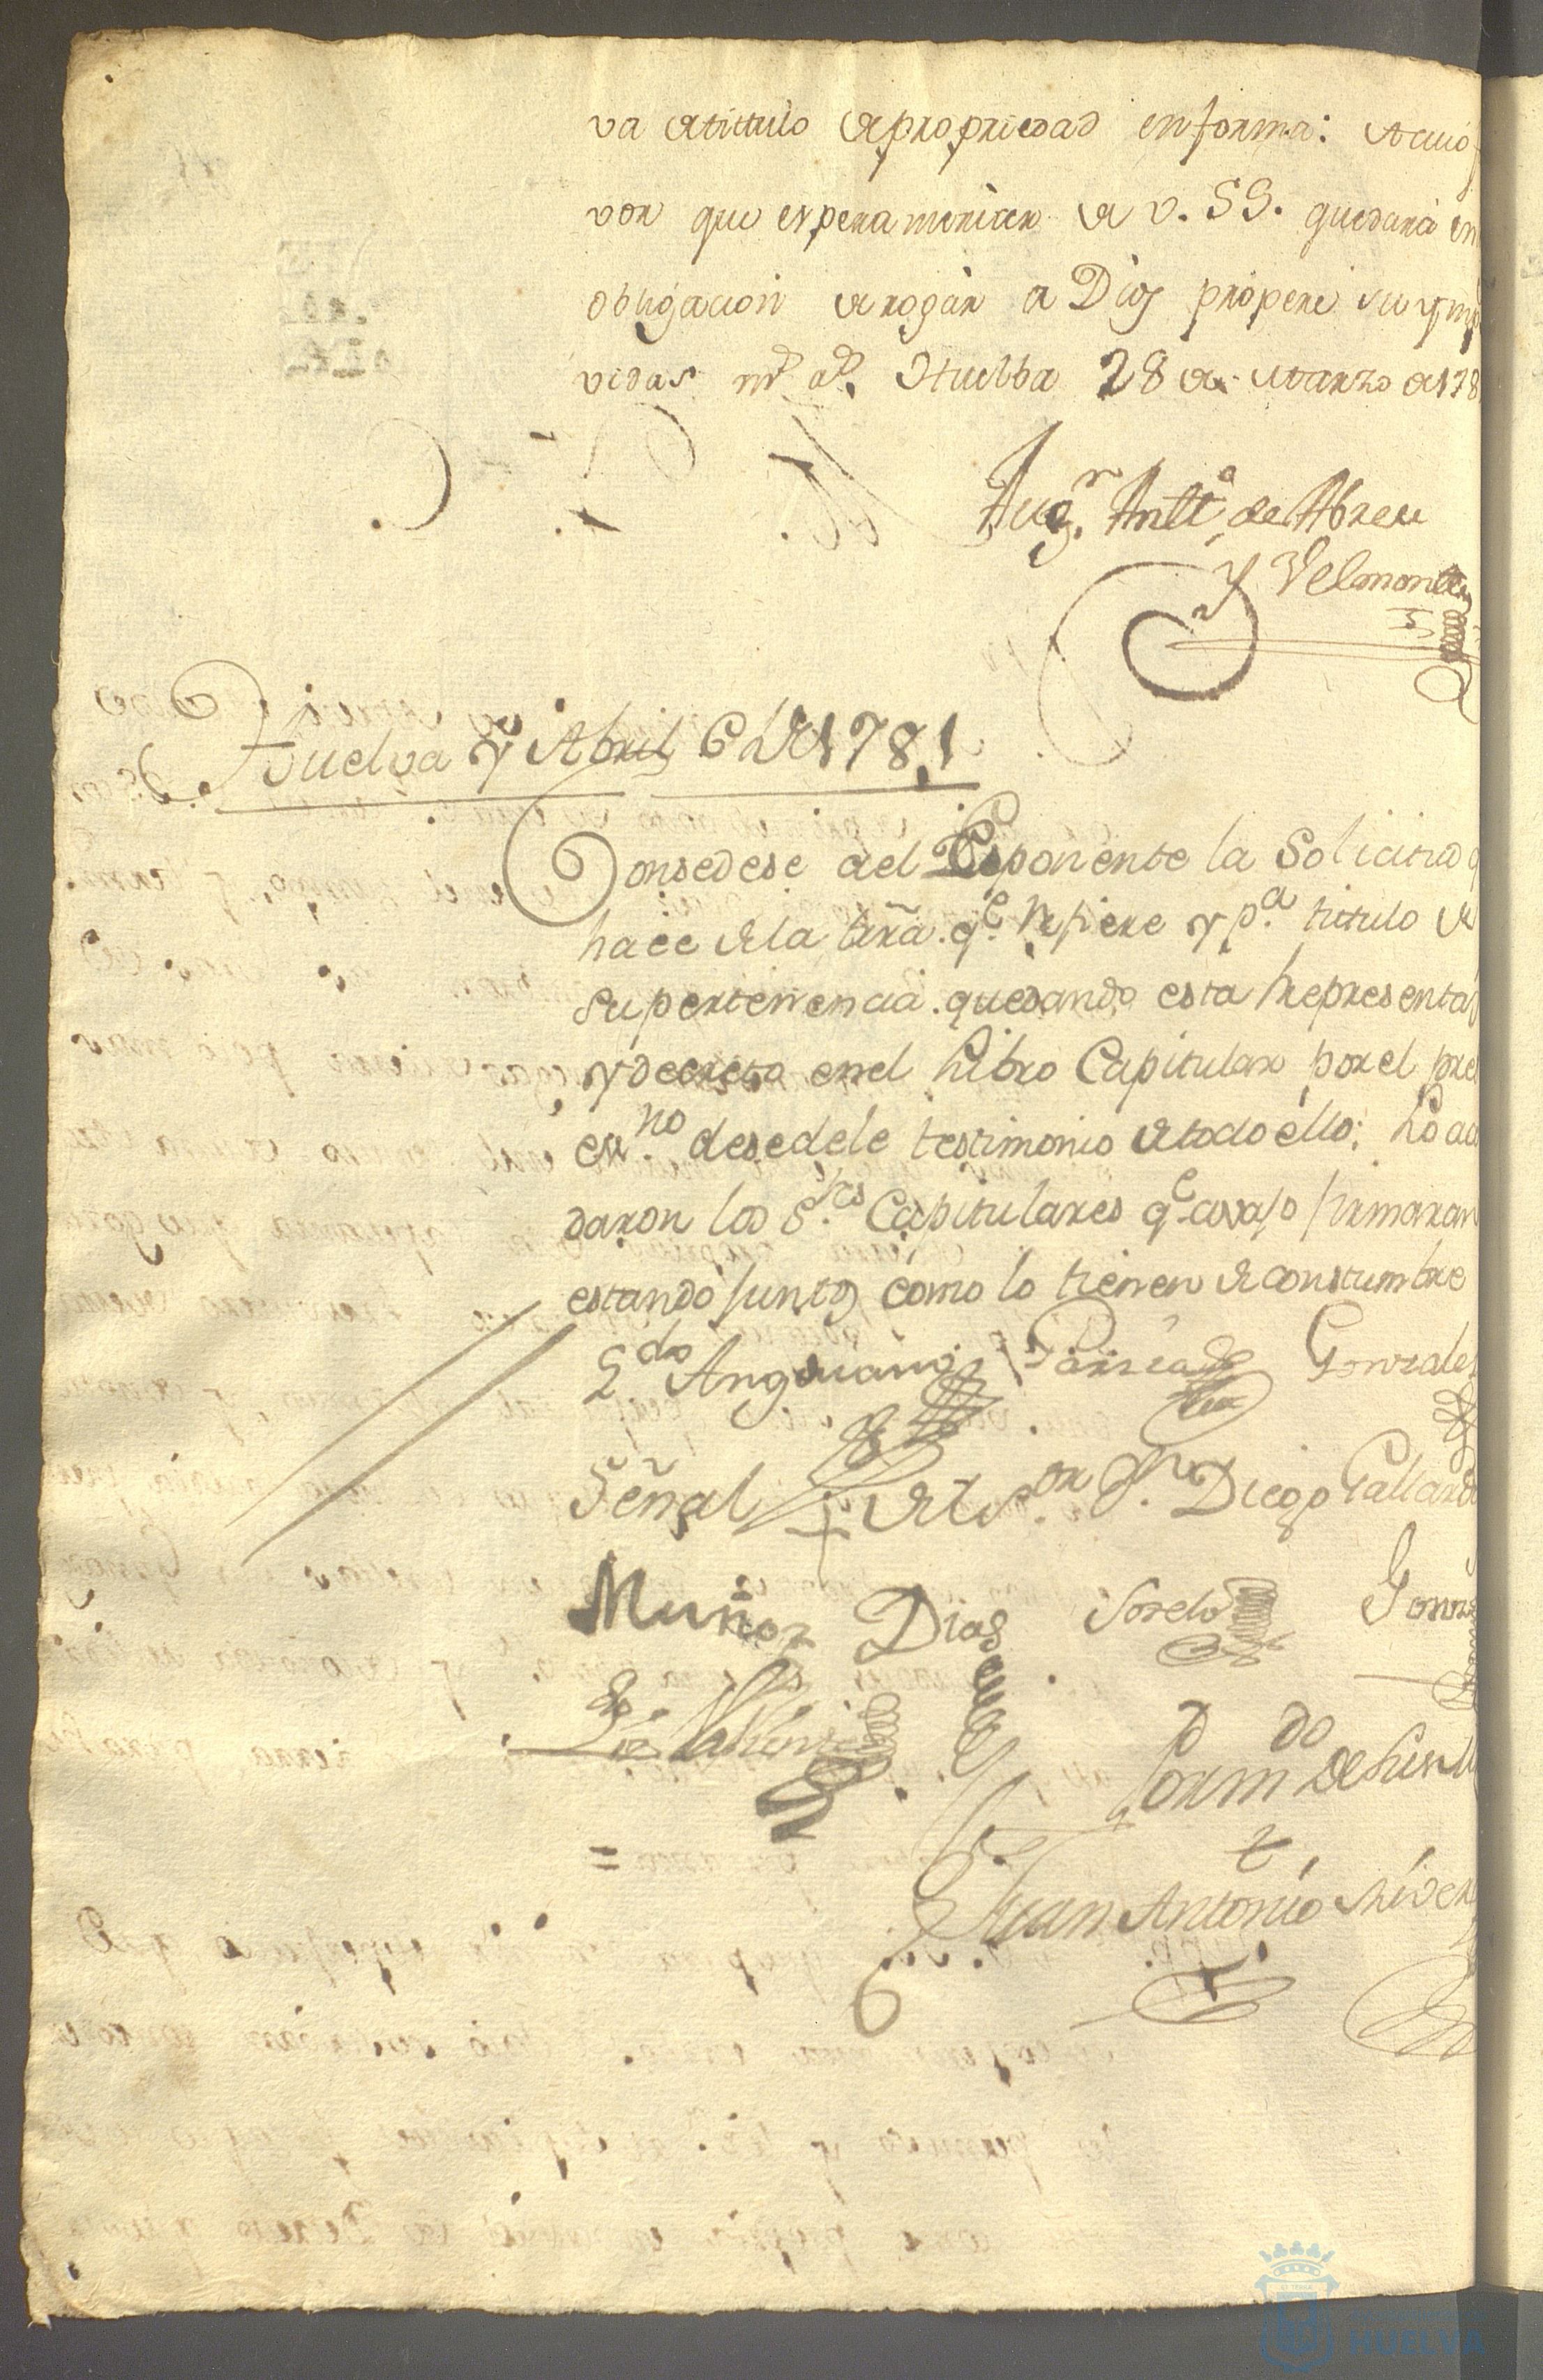 va de titulo de propriedad en forma: de cuio
vor que espera merecer de V. SS. quedará en
obligacion de rogar a Dios prospere su ymp
vidas ms. as. Huelba 28 de Marzo de 178
Augn. Antto. de Abreu
y Velmontte
Huelva y Abril 6 de 1781
Consedese al Esponente la Solicitud q
hace de la tierra qe. refiere y pa. titulo de
su pertenencia quedando esta representa
y decreto en el Libro Capitular por el pre
essno. desedele testimonio de todo ello; Lo acu
daron los Sres. Capitulares qe avajo firmaran
estando juntos como lo tienen de constumbre
Ldo Anguiano Garzia Gonzales
Señal + del Sor. Dn. Diego Gallardo
Muñoz Dias Sorelo Gonz
Por mdo. de
Juan Antonio River
HUELVA